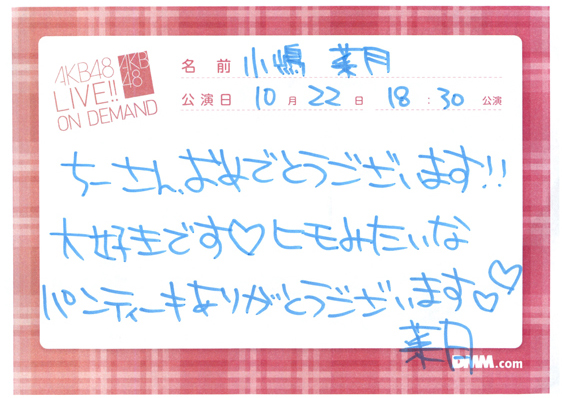 AKB48
LIVE!!
ON DEMAND
AKB
48
名 前 小嶋 菜月
公演日 10月 22日 18:30 公演
ちーさん、おめでとうございます!!
大好きです♡ヒモみたいな
パンティーもありがとうございます♡♡
菜月
DMM.com